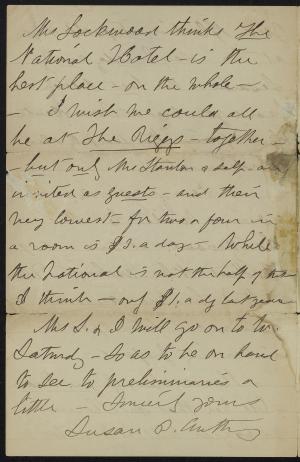 Mrs Lockwood thinks The
National Hotel - is the
best place - on the whole -
- I wish we could all
be at The Riggs - together -
- but only Mrs Stanton & self - are
invited as guests - and their
very lowest - for two or four in
a room is $3. a day - While
the National is not the half of that
I think - only $1. a dy last year
Mrs S. & I will go on to W.
Saturdy - so as to be on hand
to see to preliminaries a
little - Sincerely yours
Susan B. Anthony